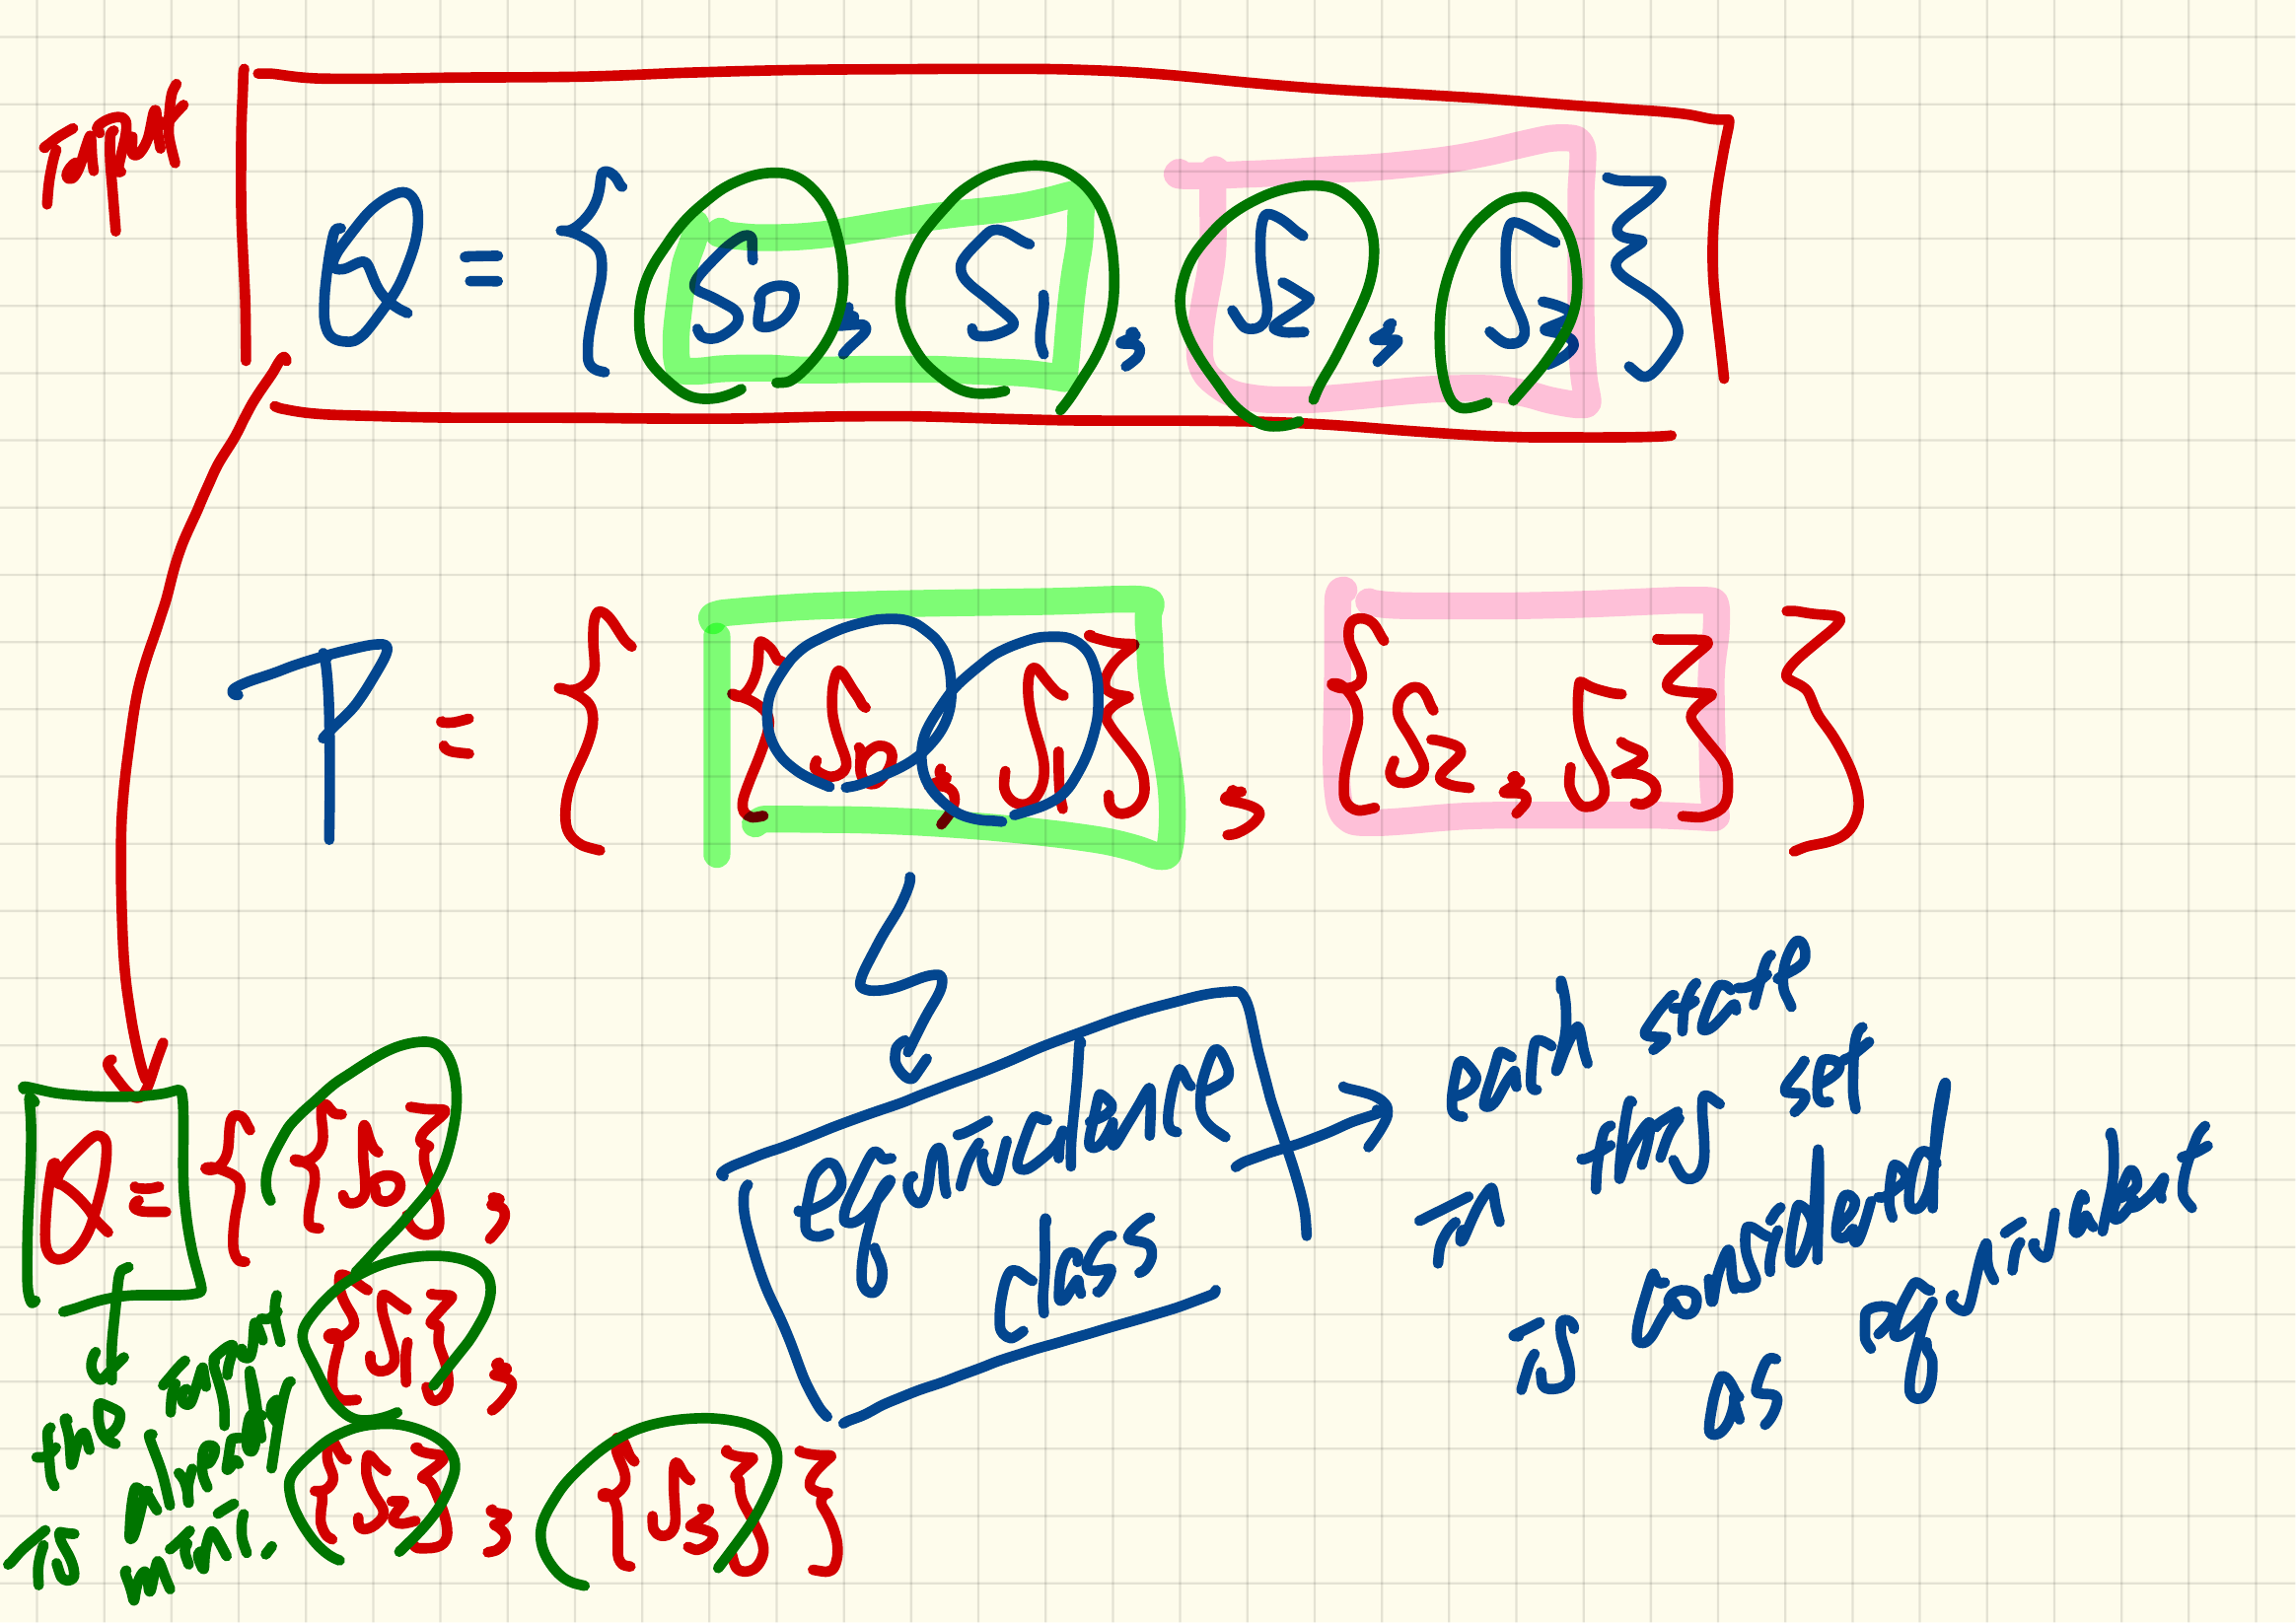 Input
Q = { S0, S1, S2, S3 }
P = { {S0, S1}, {S2, S3} }
equivalence
class
each state
in this set
is considered
as equivalent
Q = { {S0},
{S1},
{S2}, {S3} }
the input
is already
mini.